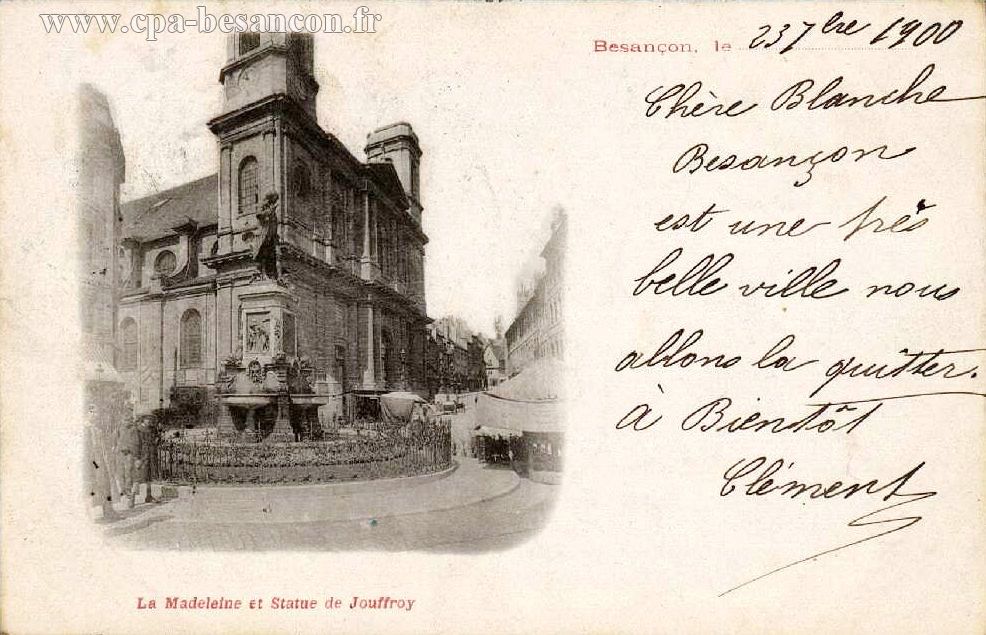 www.cpa-besançon.fr
Besançon, le 23 7bre 1900
Chère Blanche
Besançon
est une très
belle ville nous
allons la quitter.
à Bientôt
Clément
La Madeleine et Statue de Jouffroy